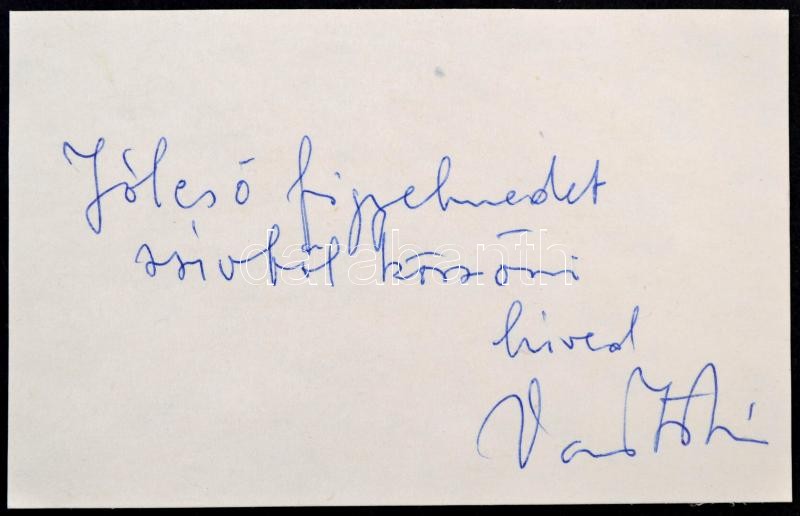 Jóleső figyelmedet
szivből köszöni
hived
darabanth